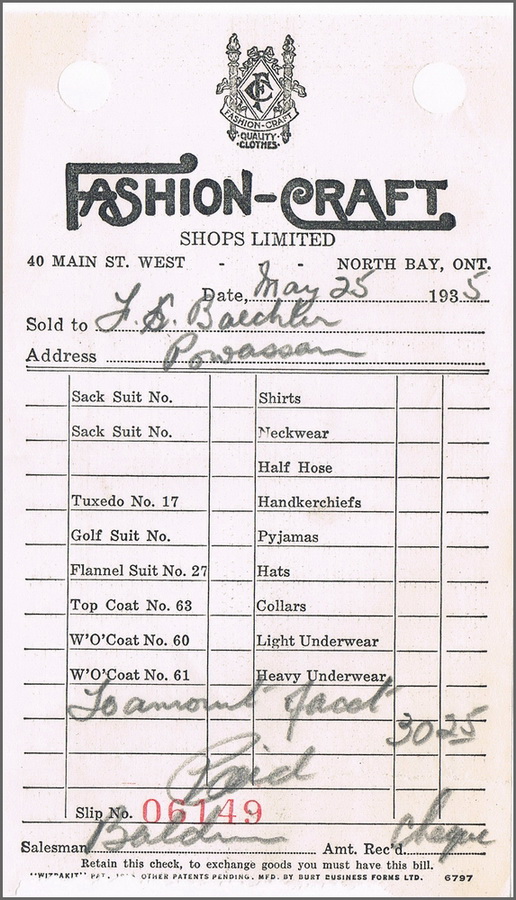 FC
FASHION-CRAFT
QUALITY
CLOTHES
FASHION-CRAFT
SHOPS LIMITED
40 MAIN ST. WEST - - NORTH BAY, ONT.
Date, May 25 1935
Sold to F. S. Baechler
Address Powassan
Sack Suit No. Shirts
Sack Suit No. Neckwear
Half Hose
Tuxedo No. 17 Handkerchiefs
Golf Suit No. Pyjamas
Flannel Suit No. 27 Hats
Top Coat No. 63 Collars
W'O'Coat No. 60 Light Underwear
W'O'Coat No. 61 Heavy Underwear
To amount facct
30 25
Paid
Slip No. 06149
Salesman Baldwin Amt. Rec'd. Cheque
Retain this check, to exchange goods you must have this bill.
"WITPAKIT" PAT. OTHER PATENTS PENDING, MFD. BY BURT BUSINESS FORMS LTD. 6797